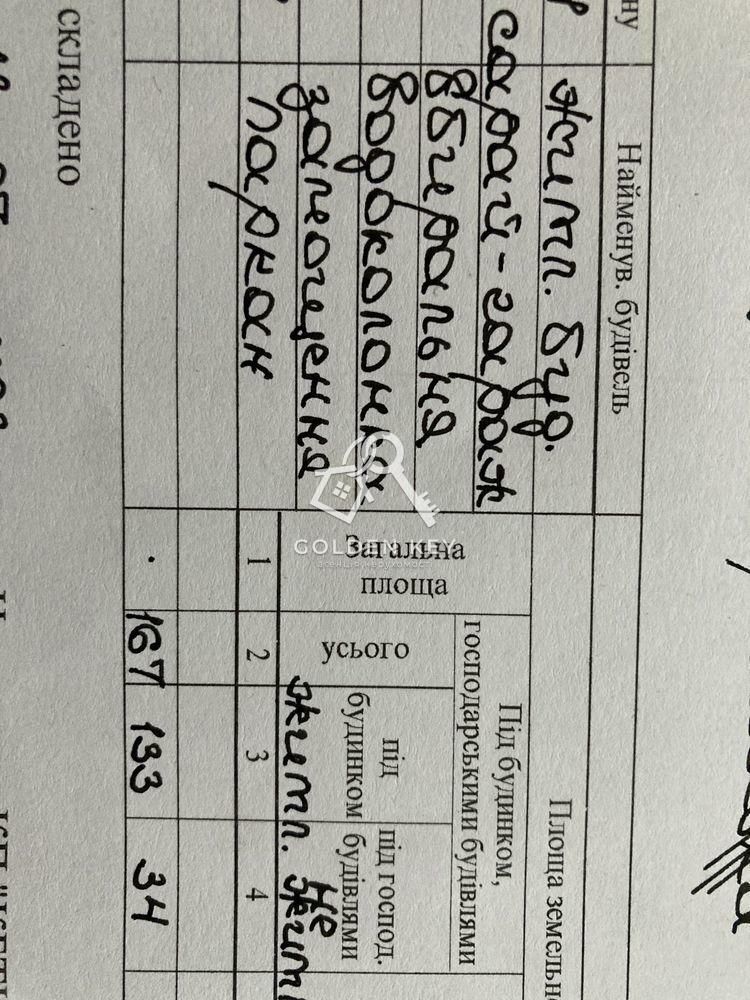 ну
Найменув. будівель
житл. буд.
сарай-гараж
вбиральня
водоколонка
замощення
паркан
складено
Площа земельн
Під будинком,
господарськими будівлями
Загальна
площа
усього
під
будинком
під господ.
будівлями
житл.
не
жит
1 2 3 4
167 133 34
GOLDEN KEY
агенція нерухомості